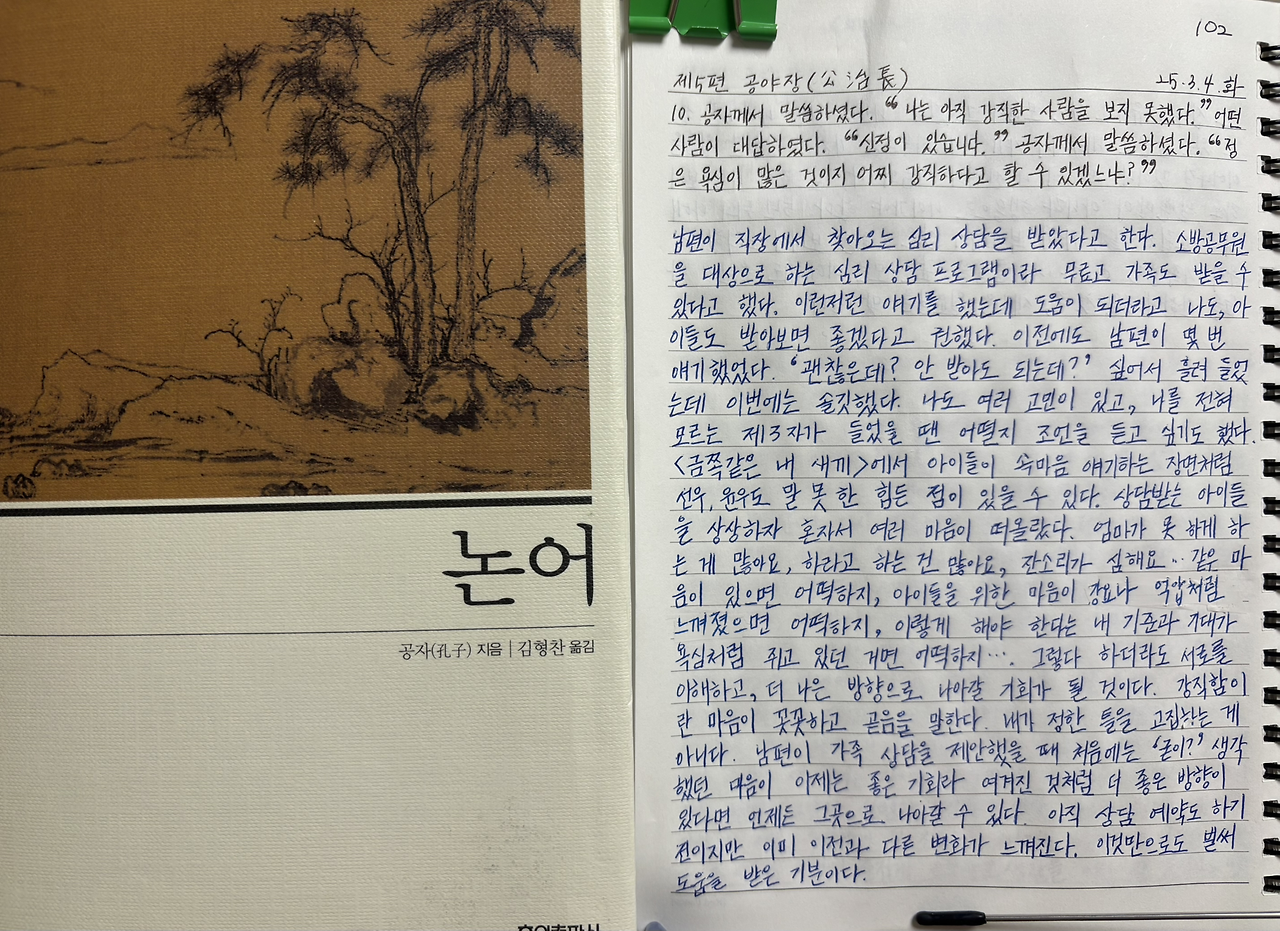 논어
공자(孔子) 지음 | 김형찬 옮김
102
제5편 공야장(公冶長) 25.3.4.화
10. 공자께서 말씀하셨다. “나는 아직 강직한 사람을 보지 못했다.” 어떤
사람이 대답하였다. “신정이 있습니다.” 공자께서 말씀하셨다. “정
은 욕심이 많은 것이지 어찌 강직하다고 할 수 있겠느냐?”
남편이 직장에서 찾아오는 심리 상담을 받았다고 한다. 소방공무원
을 대상으로 하는 심리 상담 프로그램이라 무료고 가족도 받을 수
있다고 했다. 이런저런 얘기를 했는데 도움이 되더라고 나도, 아
이들도 받아보면 좋겠다고 권했다. 이전에도 남편이 몇 번
얘기했었다. ‘괜찮은데? 안 받아도 되는데?’ 싶어서 흘려 들었
는데 이번에는 솔깃했다. 나도 여러 고민이 있고, 나를 전혀
모르는 제3자가 들었을 땐 어떨지 조언을 듣고 싶기도 했다.
<금쪽같은 내 새끼>에서 아이들이 속마음 얘기하는 장면처럼
선우, 윤우도 말 못 한 힘든 점이 있을 수 있다. 상담받는 아이들
을 상상하자 혼자서 여러 마음이 떠올랐다. 엄마가 못 하게 하
는 게 많아요, 하라고 하는 건 많아요, 잔소리가 심해요… 같은 마
음이 있으면 어떡하지, 아이들을 위한 마음이 강요나 억압처럼
느껴졌으면 어떡하지, 이렇게 해야 한다는 내 기준과 기대가
욕심처럼 쥐고 있던 거면 어떡하지…. 그렇다 하더라도 서로를
이해하고, 더 나은 방향으로 나아갈 기회가 될 것이다. 강직함이
란 마음이 꼿꼿하고 곧음을 말한다. 내가 정한 틀을 고집하는 게
아니다. 남편이 가족 상담을 제안했을 때 처음에는 ‘굳이?’ 생각
했던 마음이 이제는 좋은 기회라 여겨진 것처럼 더 좋은 방향이
있다면 언제든 그곳으로 나아갈 수 있다. 아직 상담 예약도 하기
전이지만 이미 이전과 다른 변화가 느껴진다. 이것만으로도 벌써
도움을 받은 기분이다.